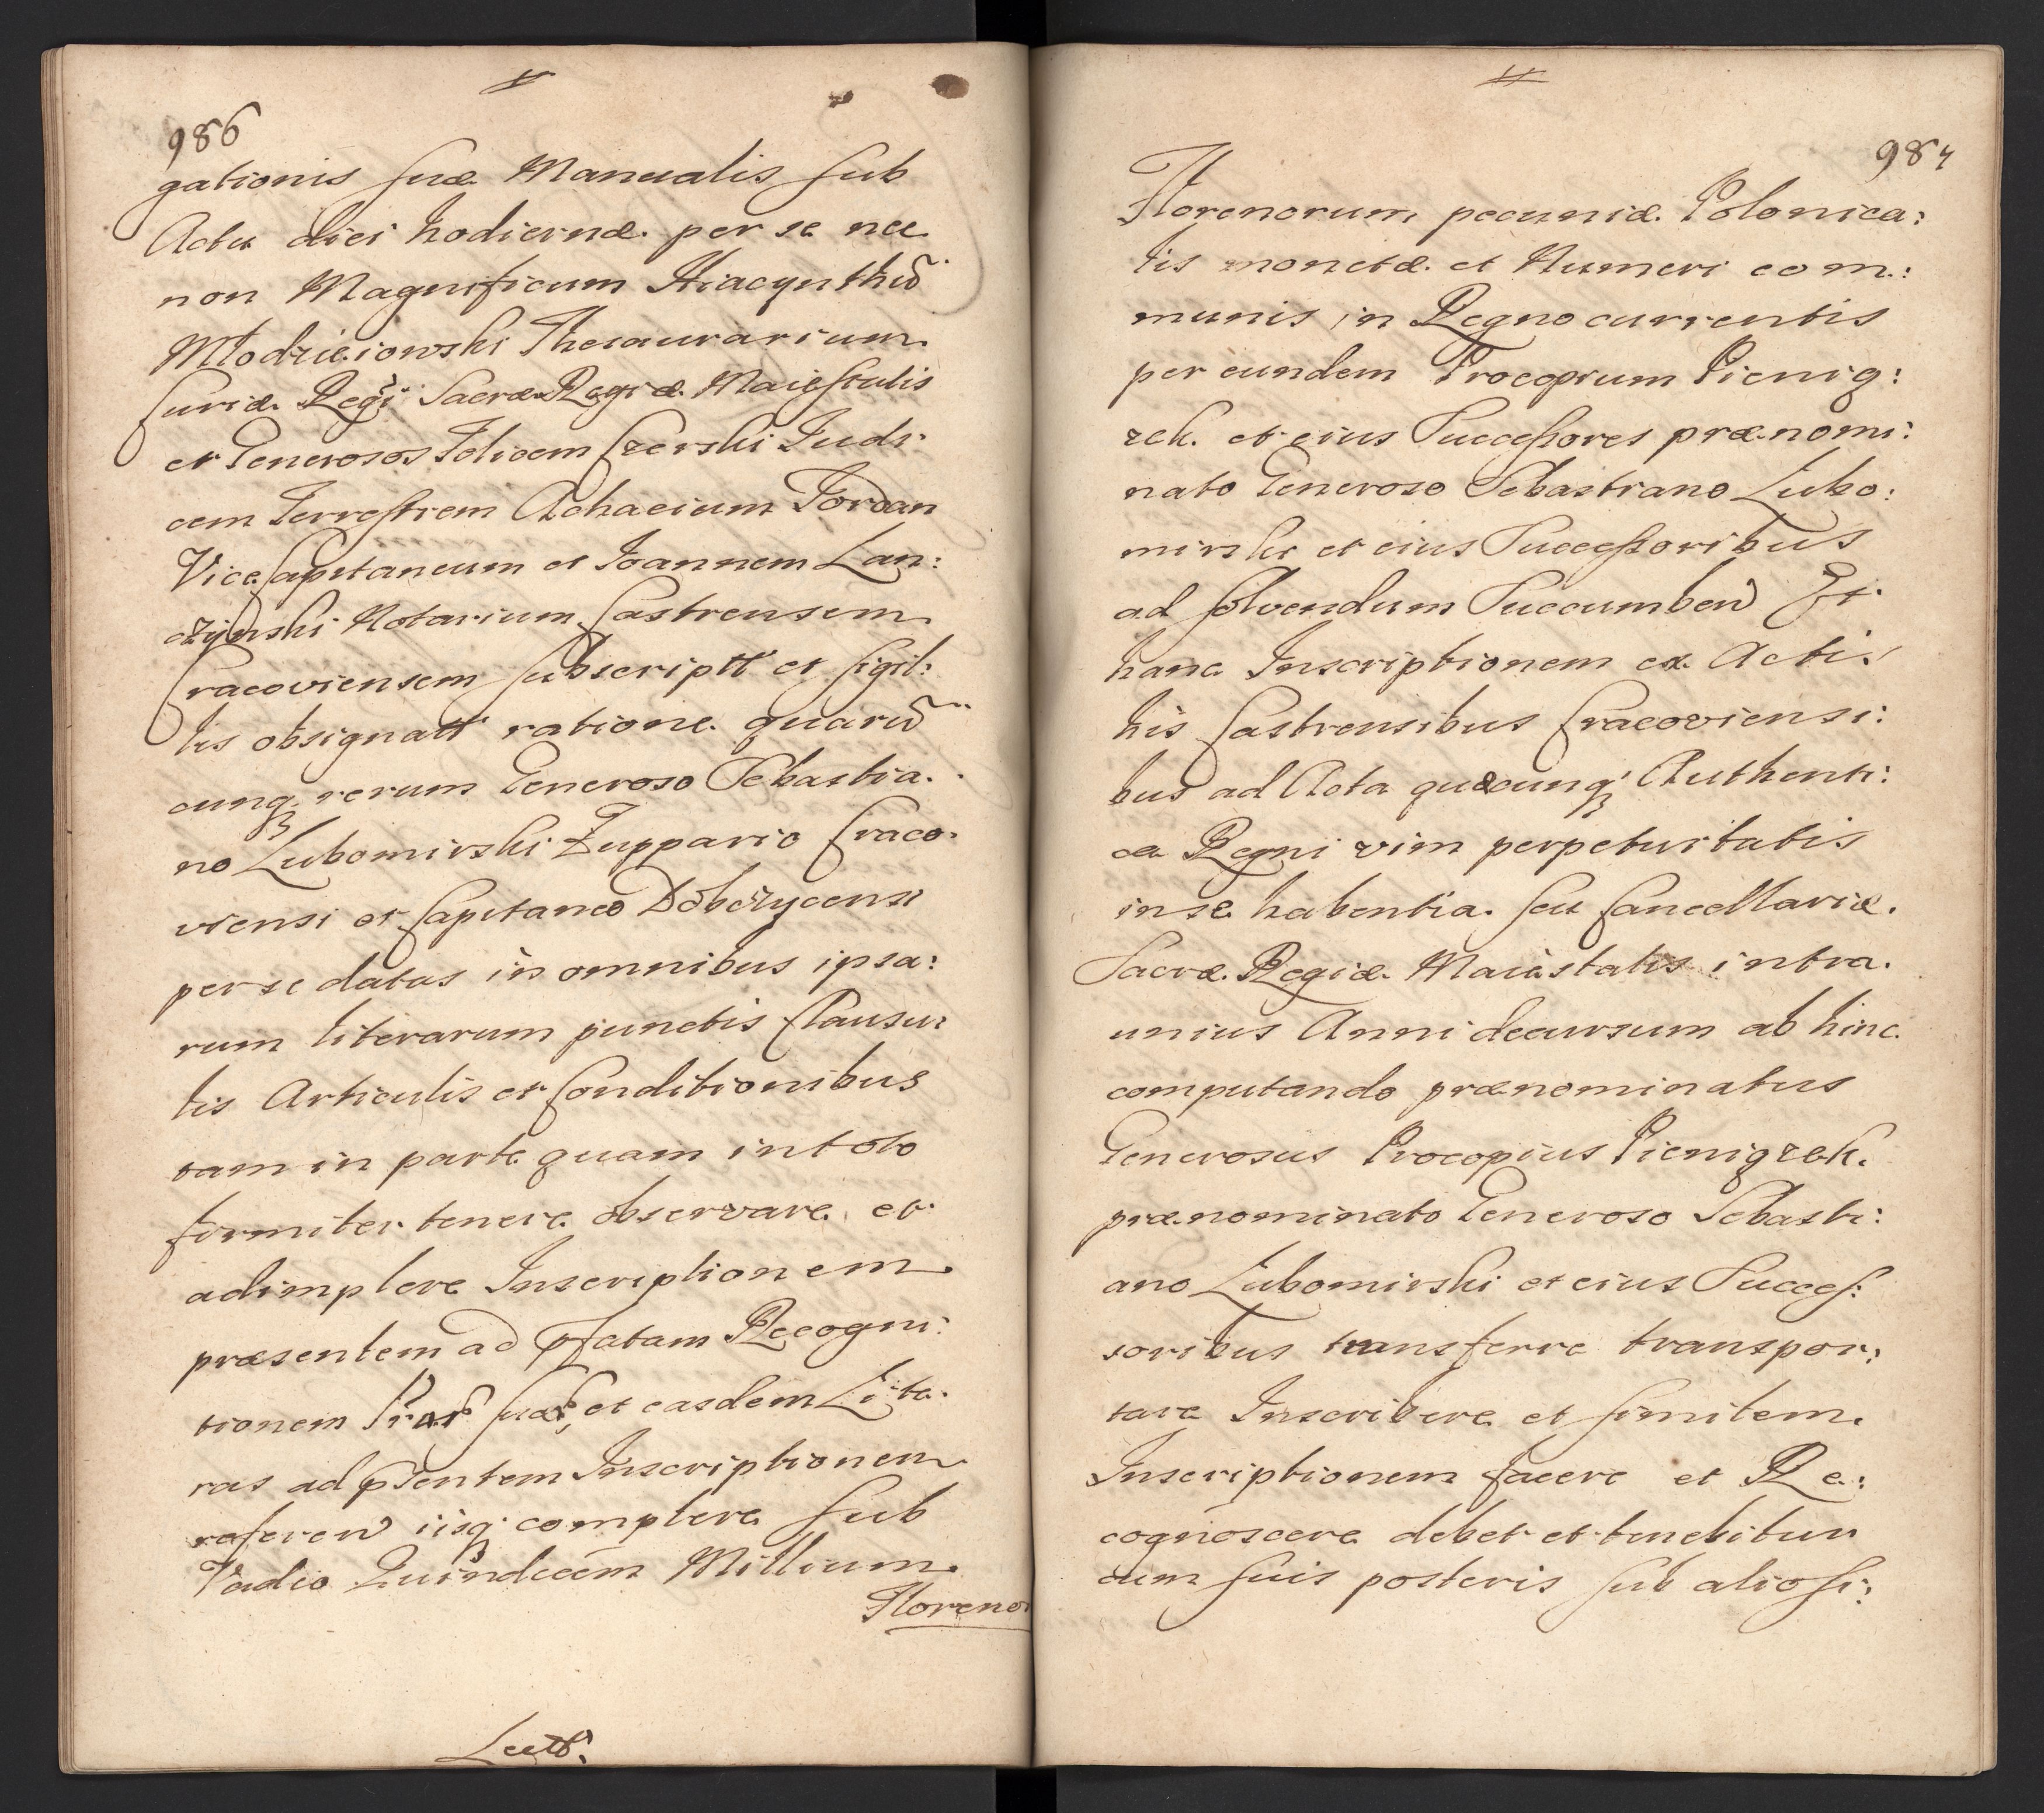 986
gationis suæ Manualis sub
Actu diei hodiernæ per se nec
non Magnificum Hiacynthũ
Młodzieiowski Thesaurarium
Curiæ Regĩ Sacræ Regiæ Maiestatis
et Generosos Felicem Czerski Judi:
cem Terrestrem Achacium Jordan
Vice Capitaneum et Joannem Lan:
czynski Notarium Castrensem
Cracoviensem subscriptt et sigil:
lis obsignatt ratione quarũ
cunq rerum Generoso Sebastia.
no Lubomirski Zuppario Craco:
viensi et Capitaneo Dobczycensi
per se datas in omnibus ipsa:
rum literarum punctis Clausu:
lis Articulis et Conditionibus
tam in parte quam in toto
firmiter tenere observare et
adimplere Inscriptionem
præsentem ad pfatam Recogni:
tionem suas et easdem Lite:
ras ad pntem Inscriptionem
referen iisq complere sub
Vadio Quindecem Millium
Floreno
Lectt.
987
Florenorum pecuniæ Polonica:
lis monetæ et Numeri com:
munis in Regno currentis
per eundem Procopium Pienią:
zek et eius Successores prænomi:
nato Generoso Sebastiano Lubo:
mirski et eius Successoribus
ad solvendum Succumben Et
hanc Inscriptionem ex Acti.
his Castrensibus Cracoviensi:
bus ad Acta quæcunq Authenti:
ca Regni vim perpetuitatis
in se habentia seu Cancellariæ
Sacræ Regiæ Maiestatis intra
unius Anni decursum ab hinc
computando prænominatus
Generosus Procopius Pieniązek
prænominato Generoso Sebasti:
ano Lubomirski et eius Succes:
soribus transferre transpor:
tare Inscribere et similem
Inscriptionem facere et Re:
cognoscere debet et tenebitur
cum suis posteris sub alio si: